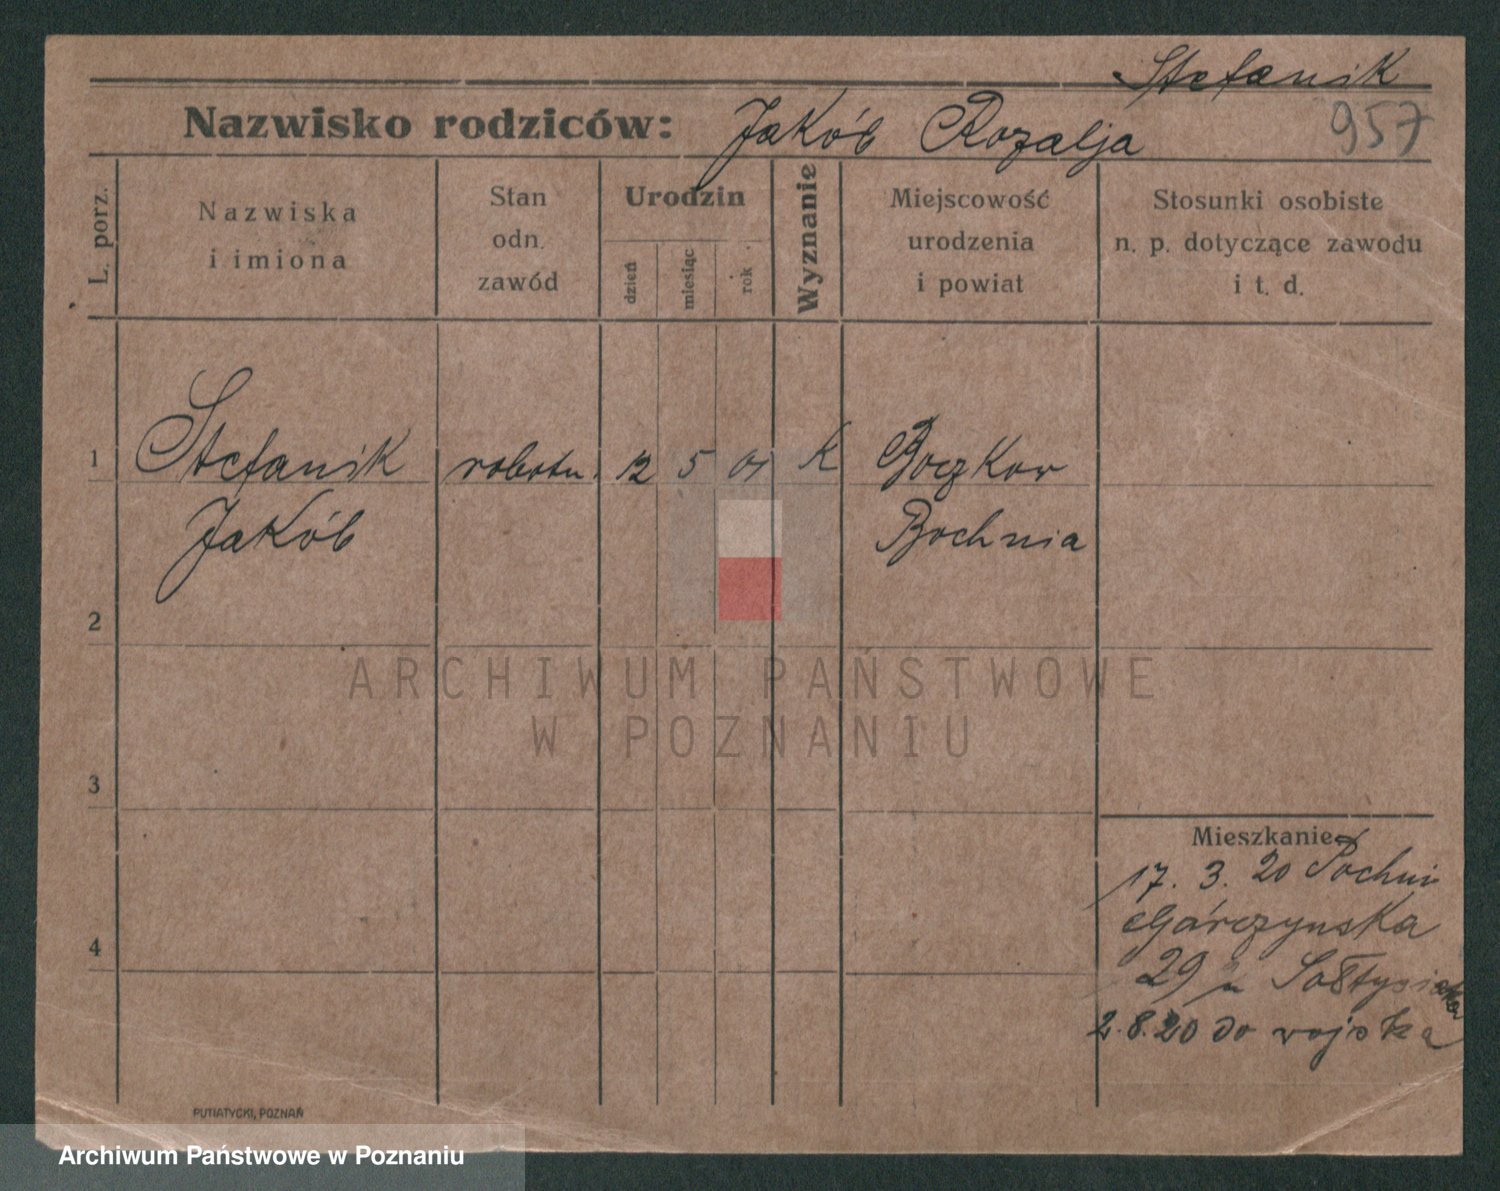 Stefanik
Nazwisko rodziców: Jakób Rozalja 957
L. porz.
Nazwiska
i imiona
Stan
odn.
zawód
Urodzin
dzień
miesiąc
rok
Wyznanie
Miejscowość
urodzenia
i powiat
Stosunki osobiste
n. p. dotyczące zawodu
i t. d.
1 Stefanik robotn. 12 5 01 K Boczkow
Jakób Bochnia
2
3
4
Mieszkanie
17. 3. 20 Bochni
Górczynska
29 u Sołtysiaka
2.8.20 do wojska
PUTIATYCKI, POZNAŃ
ARCHIWUM PAŃSTWOWE
W POZNANIU
Archiwum Państwowe w Poznaniu